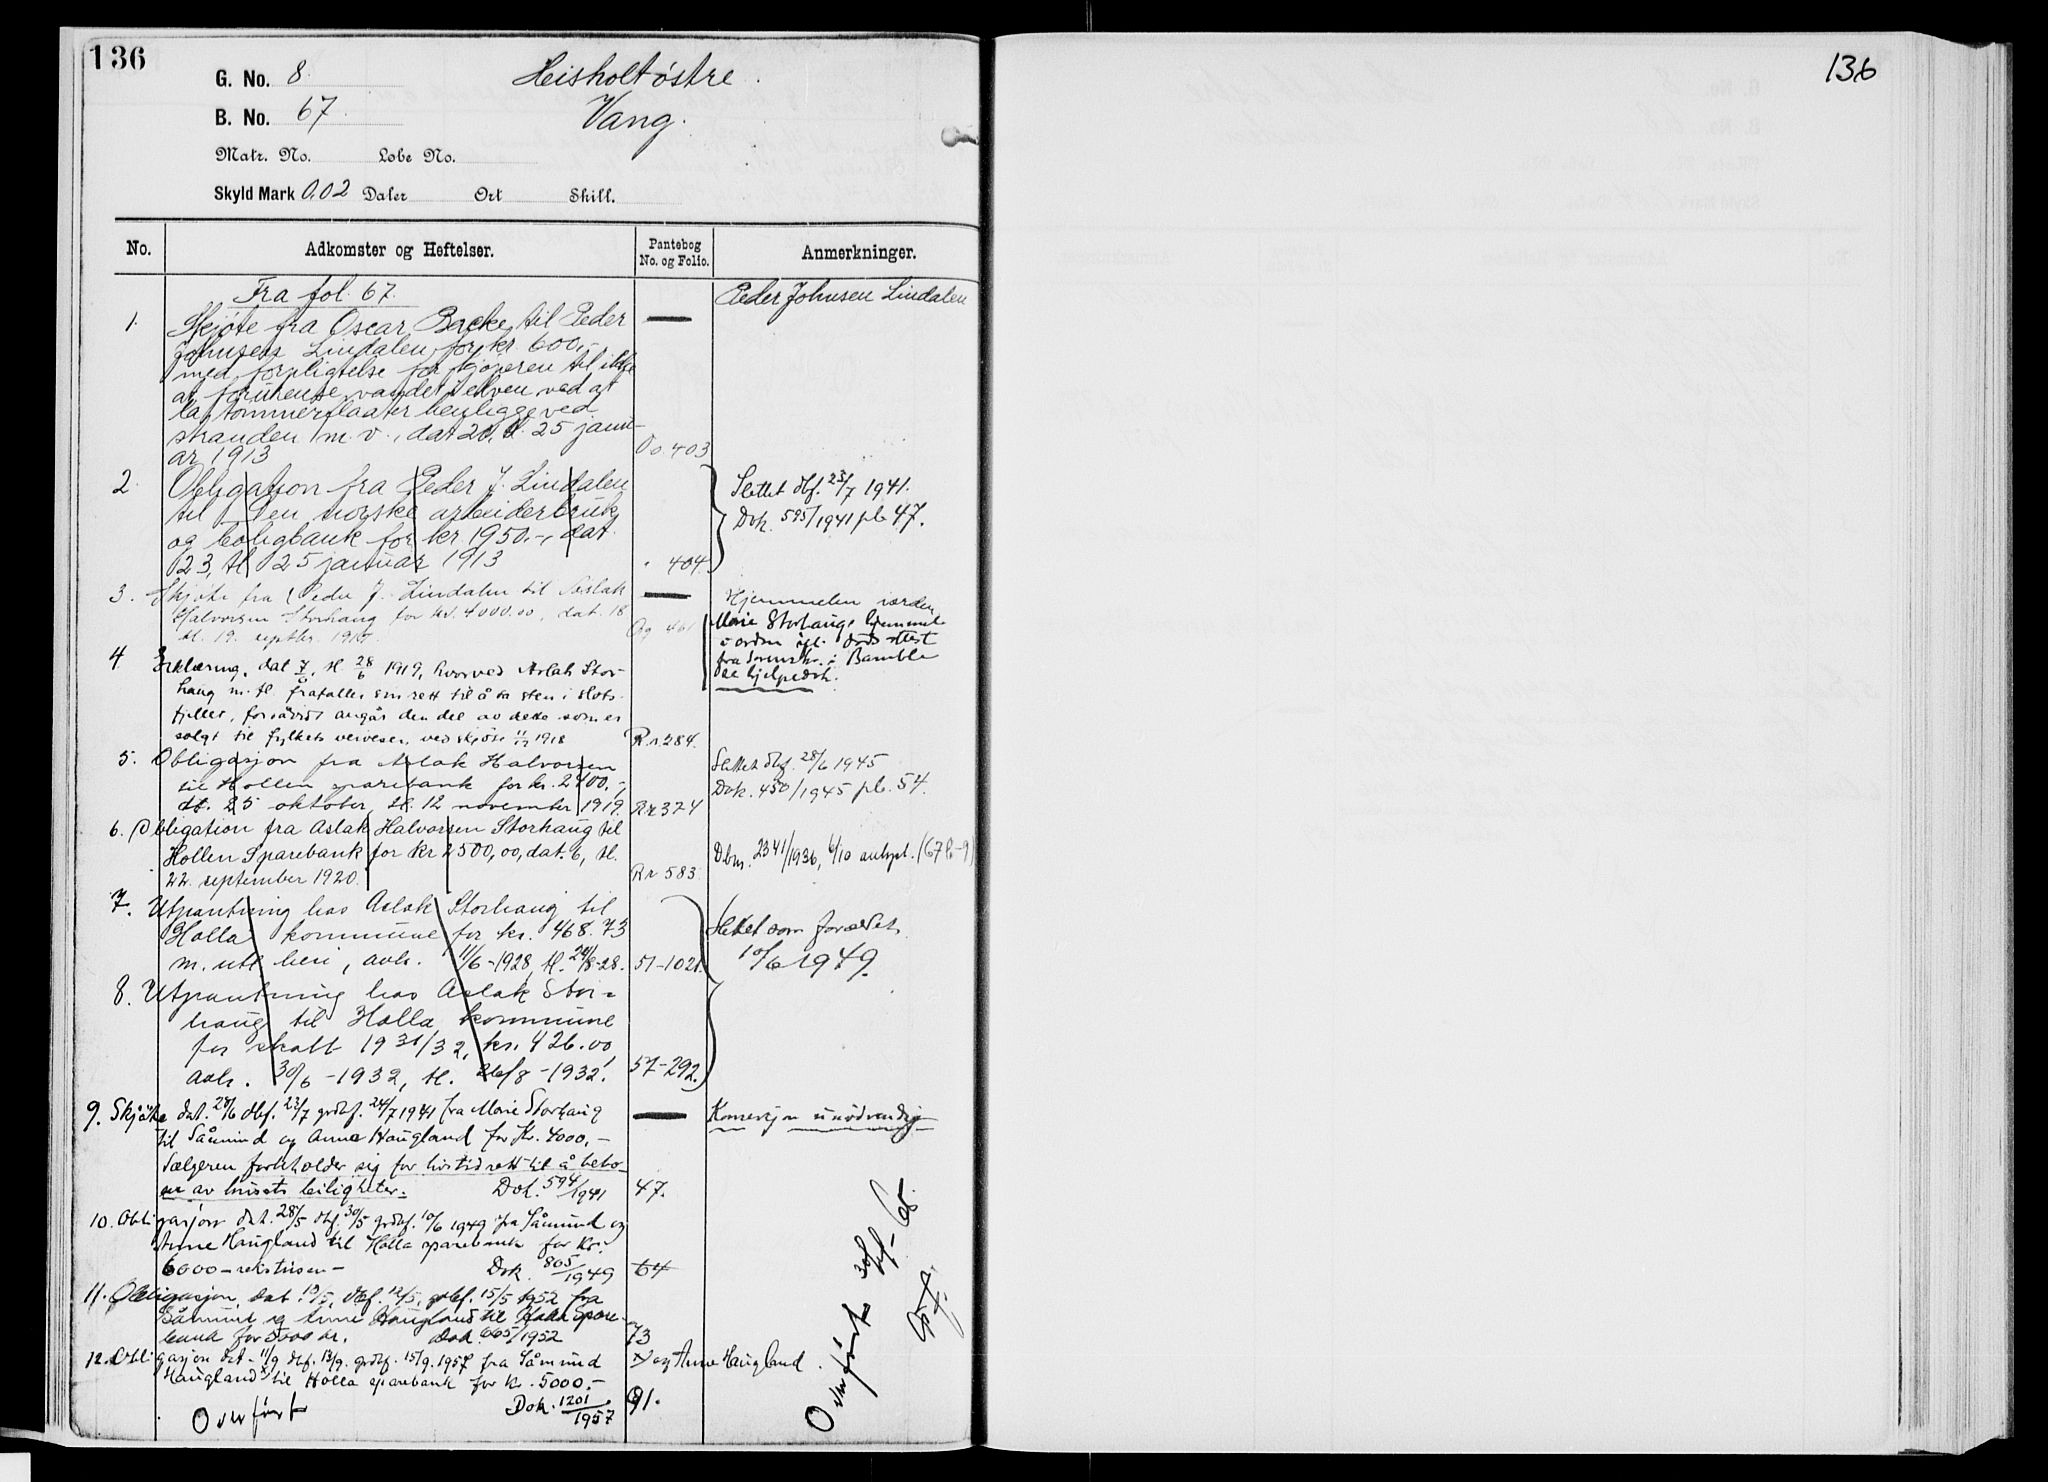 136
G. No. 8. Heisholt østre.
B. No. 67. Vang.
Matr. No. Løbe No.
Skyld Mark 0,02 Daler Ort Skill.
No. Adkomster og Heftelser. Pantebog No. og Folio. Anmerkninger.
Fra fol. 67. Peder Johnsen Lindalen
1. Skjøte fra Oscar Backe, til Peder
Johnsen Lindalen, for kr. 600,-
med forpligtelse for kjøperen til ikke
at forurense vandet i elven ved at
la tømmerflaater henligge ved
stranden m. v., dat 20, tl. 25 janu-
ar 1913 Oo. 403
2 Obligation fra Peder J. Lindalen
til Den norske arbeiderbruk
og boligbank for kr 1950.-, dat.
23, tl 25 januar 1913 " 404.
Slettet dbf. 23/7 1941.
Dok. 595/1941 pb 47.
3. Skjøte fra Peder J. Lindalen til Aslak
Halvorsen Storhaug for kr. 4000.00, dat. 18
tl. 19. septbr. Qq 461
Hjemmelen iorden
Marie Storhaugs hjemmel
i orden jfr. dødsattest
fra Sorenskr. i Bamble
se hjelpedok.
4 Erklæring, dat 7/6, tl. 28/6 1919, hvorved Aslak Stor-
haug m. fl. frafaller sin rett til å ta sten i Slots-
fjellet, forsåvidt angår den del av dette som er
solgt til fylkets veivesen, ved skjøte 11/12 1918 R.r. 284.
5. Obligasjon fra Aslak Halvorsen
til Hollen sparebank for kr. 2400.,-
dt. 25 oktober, tl. 12 november 1919. R.r 374
Slettet dbf. 28/6 1945
Dok. 450/1945 pb. 54.
6. Obligation fra Aslak Halvorsen Storhaug til
Hollen Sparebank for kr 2500,00, dat. 6, tl.
22. september 1920. Rr 583.
Dbnr. 2341/1936, 6/10
7. Utpantning hos Aslak Storhaug til
Holla kommune for kr. 468.73
m. utl. heri, avh. 11/6-1928, tl. 24/8-28. 51-1021.
Slettet som foreldet
10/6 1949.
8. Utpantning hos Aslak Stor-
haug til Holla kommune
for skatt 1931/32, kr. 426.00
avh. 30/6-1932, tl. 26/8-1932. 57-292.
9. Skjøte dat. 28/6 dbf. 23/7 grdbf. 24/7 1941 fra Marie Storhaug
til Såmund og Anne Haugland for Kr. 4000,-
Sælgeren forbeholder sig for livstid rett til å bebo
en av husets leiligheter. Dok. 594/1941 47.
Konsesjon unødvendig
10. Obligasjon dat. 28/5 dbf. 30/5 grdbf. 10/6 1949 fra Såmund og
Anne Haugland til Holla sparebank for Kr.
6000 - Dok. 805/1949 64
11. Obligasjon, dat. 10/5, dbf. 12/5, grdbf. 15/5 1952 fra
Såmund og Anne Haugland til Holla Spare-
bank for 5000 kr. Dok. 665/1952 73
12. Obligasjon dat. 11/9 dbf. 13/9. grdbf. 15/9. 1957 fra Såmund
Haugland x) til Holla sparebank for kr. 5000,-
Dok. 1201/1957 91.
x) og Anne Haugland.
Overført
Overført
136